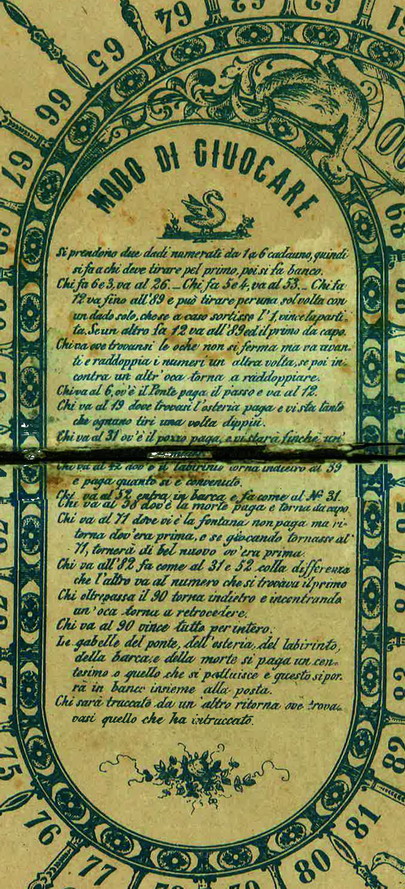 64
65
66
67
MODO DI GIUOCARE
Si prendono due dadi numerati da 1 a 6 cadauno, quindi
si fa a chi deve tirare pel primo, poi si fa banco.
Chi fa 6 e 3, va al 26._ Chi fa 5 e 4, va al 53._ Chi fa
12 va fino all'89 e può tirare per una sol volta con
un dado solo, che se a caso sortisse l'1, vince la parti-
ta. Se un altro fa 12 va all'89 ed il primo da capo.
Chi va ove trovansi le oche non si ferma ma va avan-
ti e raddoppia i numeri un altra volta, se poi in-
contra un altr'oca torna a raddoppiare.
Chi va al 6, ov'è il Ponte paga il passo e va al 12.
Chi va al 19 dove trovasi l'osteria paga e vi sta tanto
che ognuno tiri una volta dippiù.
Chi va al 31 ov'è il pozzo paga, e vi starà finchè un'
Chi va al 42 dov'è il labirinto torna indietro al 39
e paga quanto si è convenuto.
Chi va al 52 entra in barca e fa come al No. 31.
Chi va al 58 dov'è la morte paga e torna da capo.
Chi va al 71 dove vi è la fontana non paga ma ri-
torna dov'era prima, e se giocando tornasse al
71, tornerà di bel nuovo ov'era prima.
Chi va all'82, fa come al 31 e 52 colla differenza
che l'altro va al numero che si trovava il primo
Chi oltrepassa il 90 torna indietro e incontrando
un'oca torna a retrocedere.
Chi va al 90 vince tutto per intero.
Le gabelle del ponte, dell'osteria, del labirinto,
della barca, e della morte si paga un cen-
tesimo o quello che si pattuisce e questo si por-
rà in banco insieme alla posta.
Chi sarà truccato da un altro ritorna ove trova-
vasi quello che ha intruccato.
76
77
80
81
82